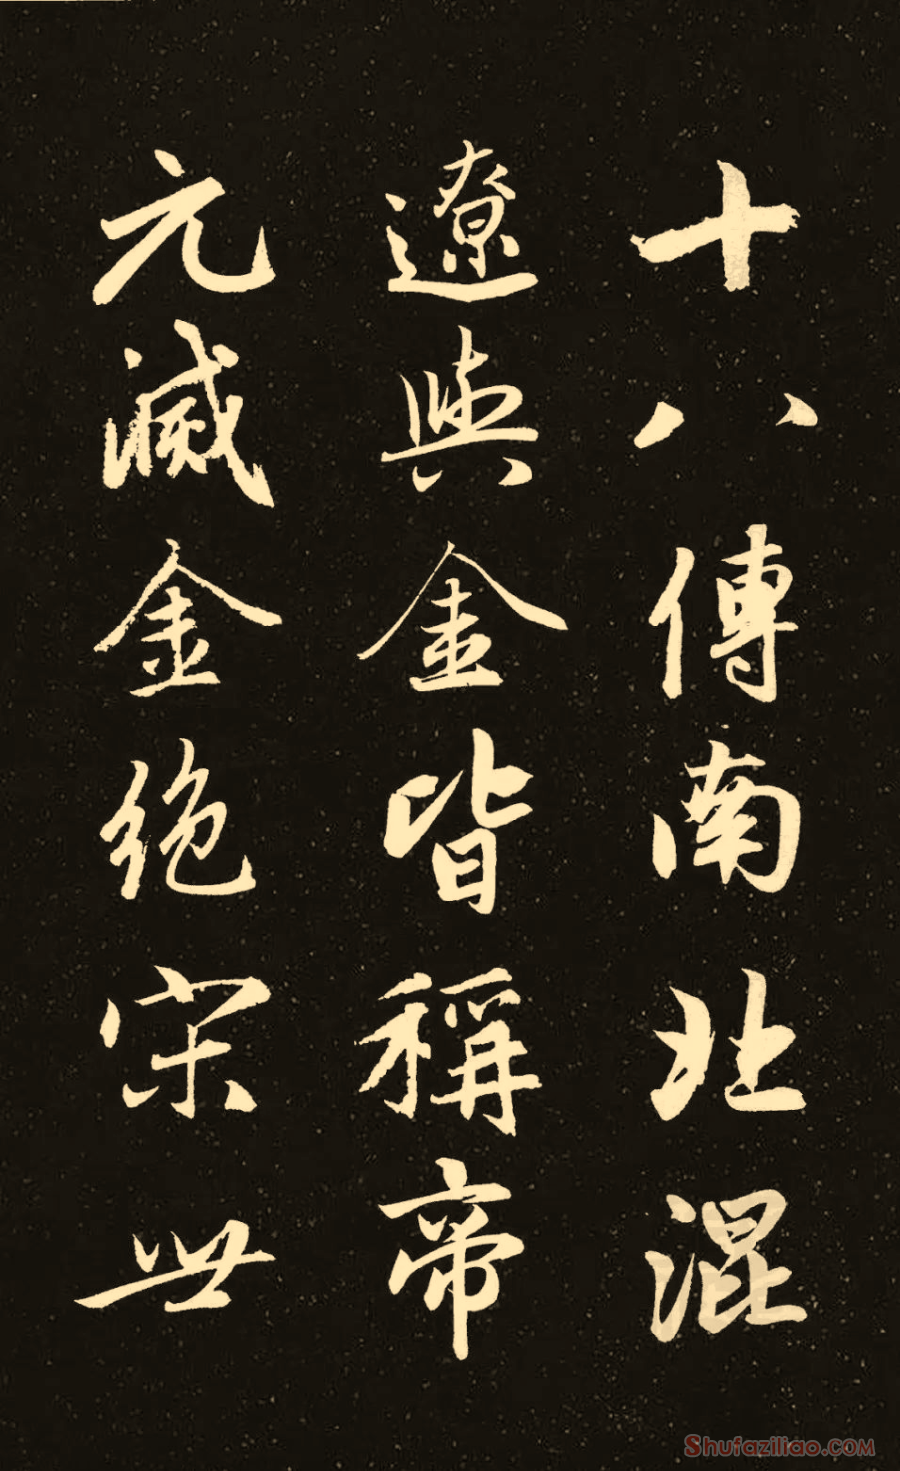 十八傳南北混
遼與金皆稱帝
元滅金絕宋世
Shufaziliao.com